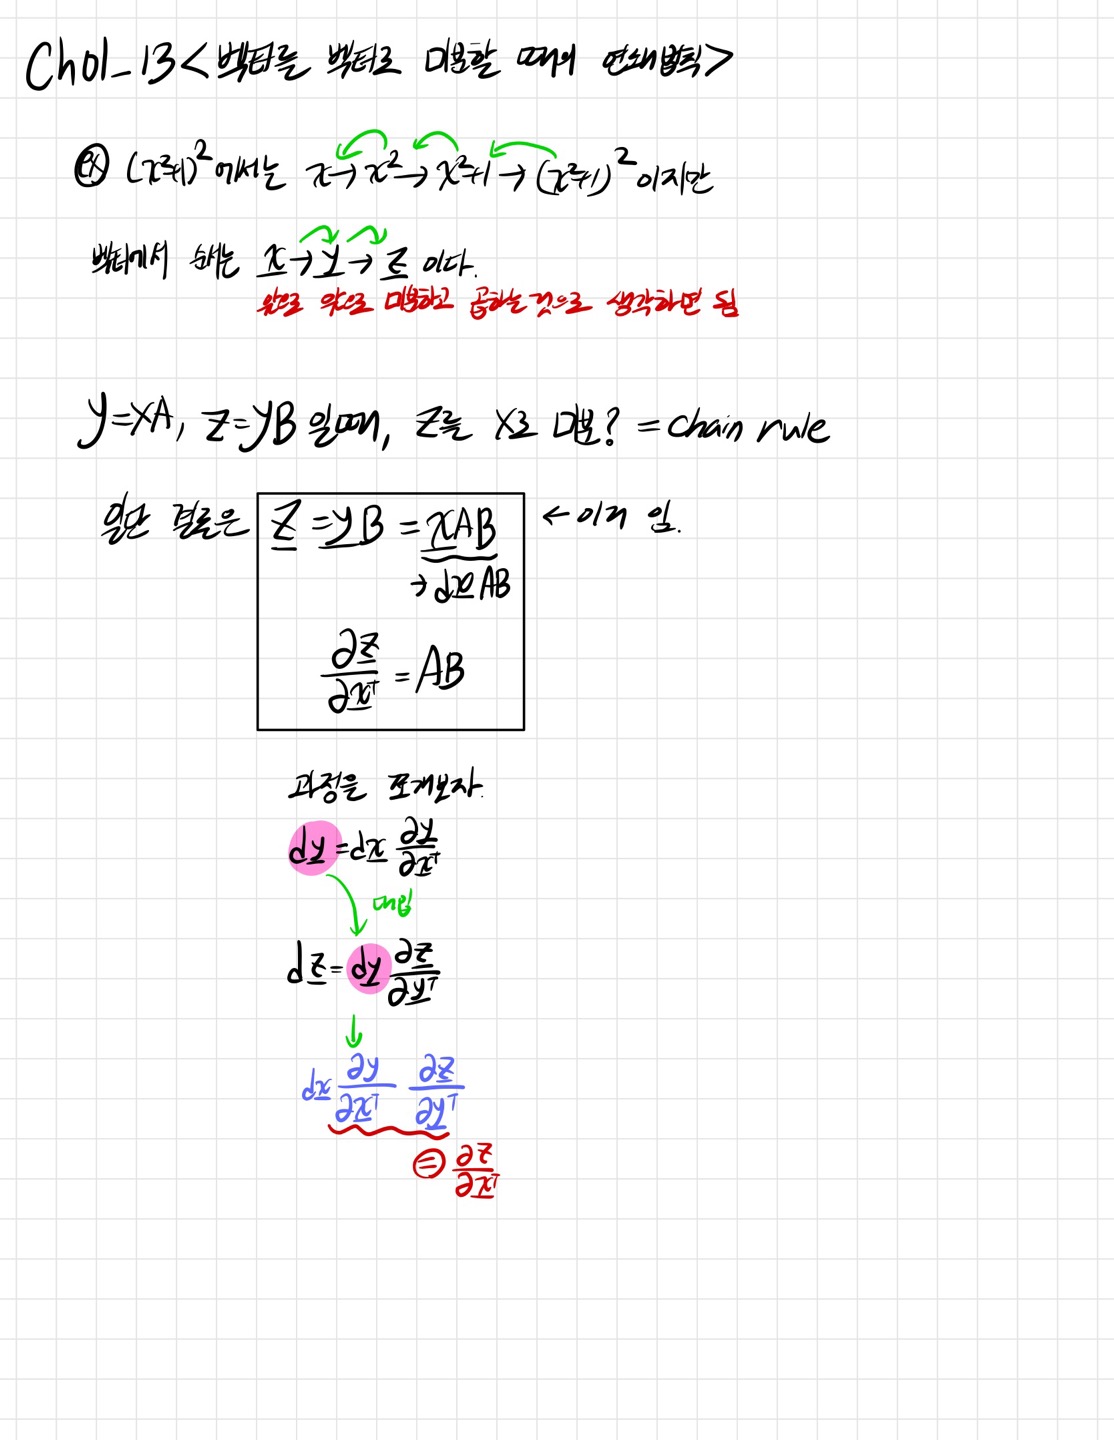 Ch01-13 <벡터를 벡터로 미분할 때의 연쇄법칙>
ex (x²+1)² 에서는 x→x²→x²+1→(x²+1)² 이지만
벡터에서 순서는 x→y→z 이다.
앞으로 앞으로 미분하고 곱하는 것으로 생각하면 됨
y=xA, z=yB 일때, z를 x로 미분? = chain rule
일단 결론은 z = yB = xAB ← 이거 임.
→ dx AB
∂z/∂xᵀ = AB
과정을 쪼개보자.
dy = dx ∂y/∂xᵀ
대입
dz = dy ∂z/∂yᵀ
↓
dx ∂y/∂xᵀ ∂z/∂yᵀ
= ∂z/∂xᵀ